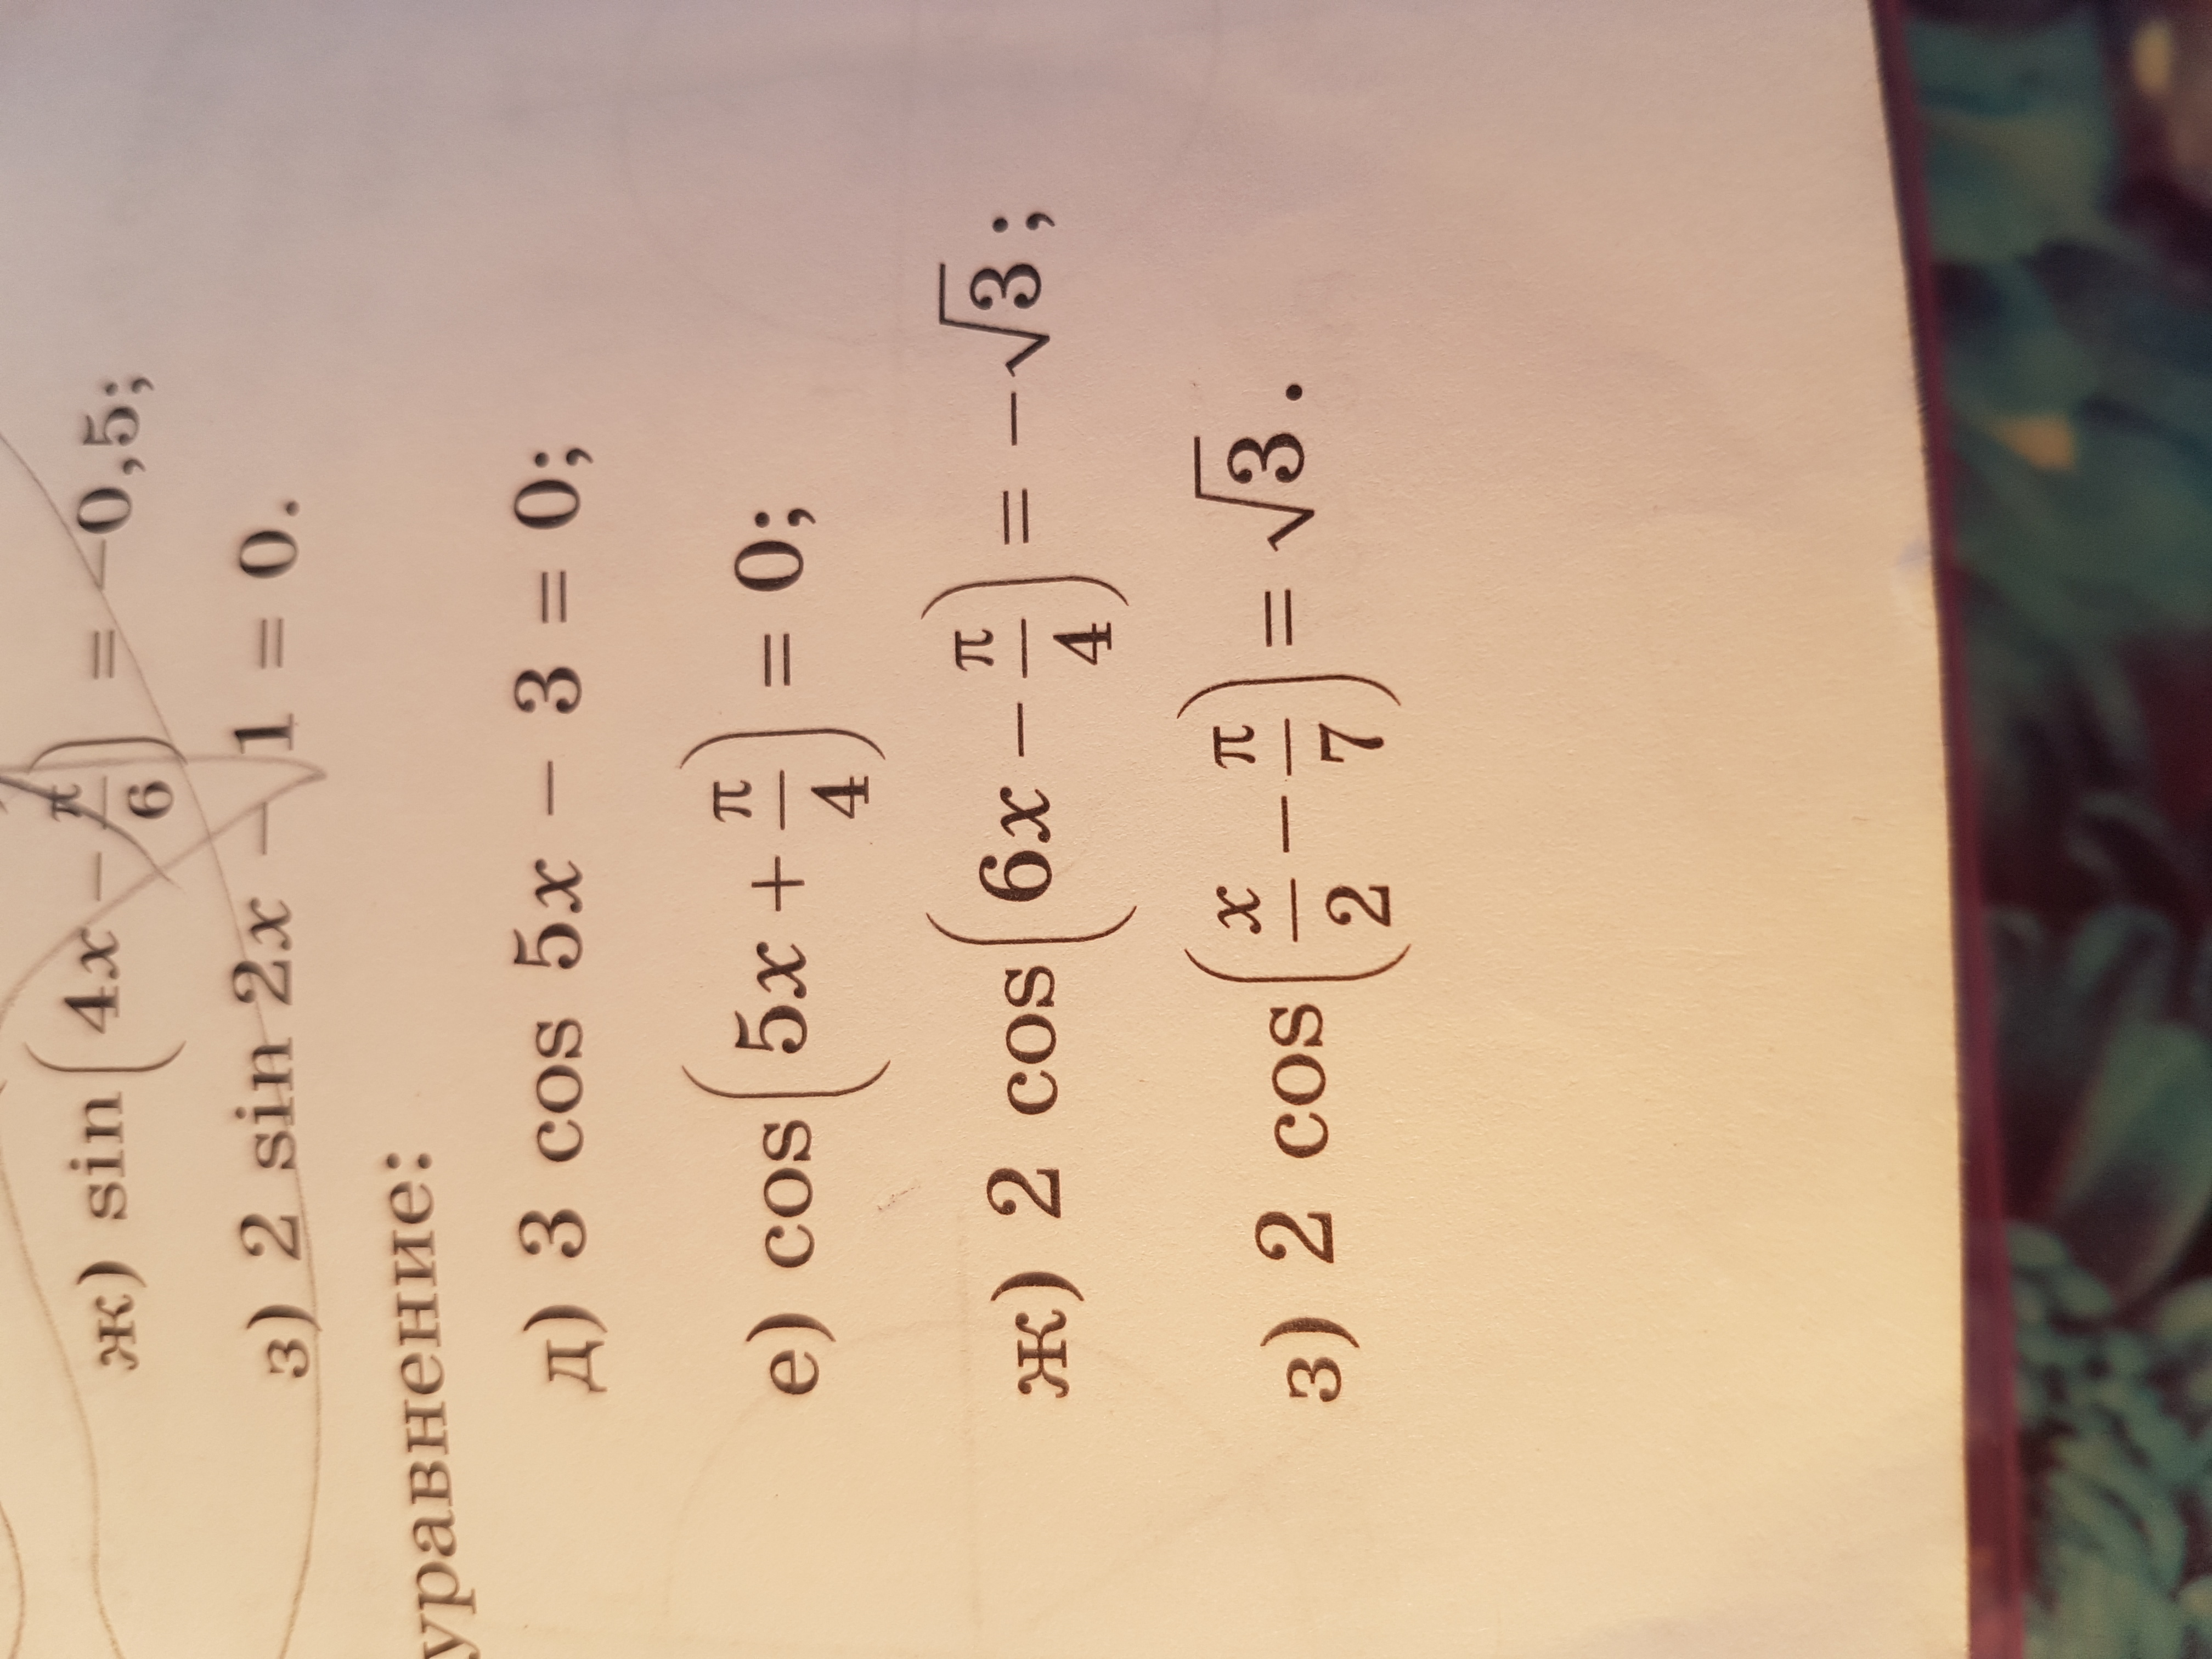 ж) sin(4x − π/6) = −0,5;
з) 2 sin 2x − 1 = 0.
уравнение:
д) 3 cos 5x − 3 = 0;
е) cos(5x + π/4) = 0;
ж) 2 cos(6x − π/4) = −√3;
з) 2 cos(x/2 − π/7) = √3.